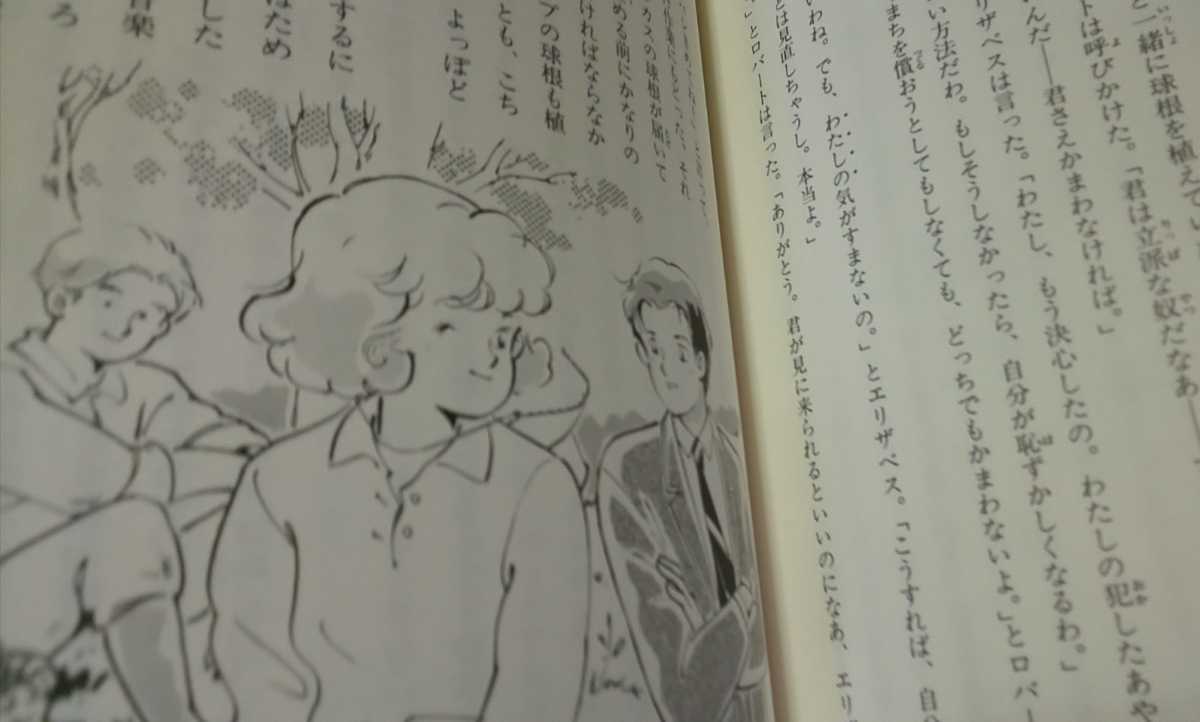 と一緒に球根を植えてい
トは呼びかけた。「君は立派な奴だなあ―
んだ――君さえかまわなければ。」
リザベスは言った。「わたし、もう決心したの。わたしの犯したあや
い方法だわ。もしそうしなかったら、自分が恥ずかしくなるわ。」
まちを償おうとしてもしなくても、どっちでもかまわないよ。」とロバー
いわね。でも、わたしの気がすまないの。」とエリザベス。「こうすれば、自
とは見直しちゃうし。本当よ。」
」とロバートは言った。「ありがとう。君が見に来られるといいのになあ、エリ
仕事にもどった。それ
カスの球根が届いて
める前にかなりの
ければならなか
プの球根も植
とも、こち
よっぽど
するに
はため
した
音楽
ろ